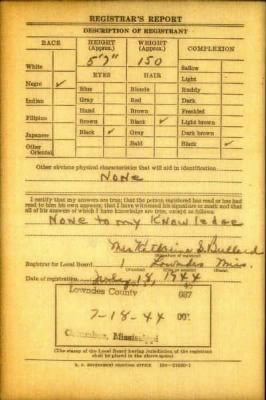 REGISTRAR'S REPORT
DESCRIPTION OF REGISTRANT
RACE HEIGHT (Approx.) WEIGHT (Approx.) COMPLEXION
5'7" 150
White Sallow
EYES HAIR Light
Negro ✓ Blue Blonde Ruddy
Indian Gray Red Dark
Hazel Brown Freckled
Filipino Brown Black ✓ Light brown
Japanese Black ✓ Gray Dark brown
Other Oriental Bald Black ✓
Other obvious physical characteristics that will aid in identification
None
I certify that my answers are true; that the person registered has read or has had
read to him his own answers; that I have witnessed his signature or mark and that
all of his answers of which I have knowledge are true, except as follows:
None to my Knowledge
Mrs Katherine S. Bullard
Registrar for Local Board 1 Lowndes Miss.
Date of registration July 18, 1944
Lowndes County 087
7-18-44 001
Columbus, Mississippi
(The stamp of the Local Board having jurisdiction of the registrant
shall be placed in the above space)
U. S. GOVERNMENT PRINTING OFFICE